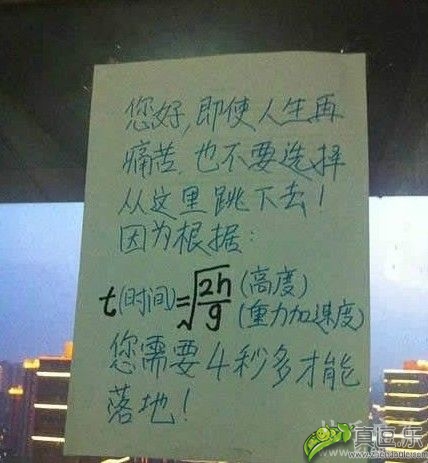 您好,即使人生再
痛苦,也不要选择
从这里跳下去!
因为根据:
t(时间)=√2h/g (高度)(重力加速度)
您需要4秒多才能
落地!